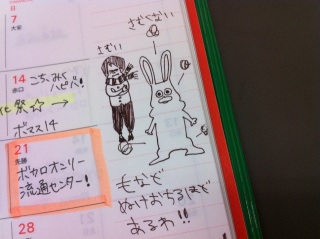 日
7
大安
14
赤口
こち、みく
ハピバ!
化祭☆→
ボマス14
21
先勝
ボカロオンリー
流通センター!
28
さむい
さむくない
もなど
ぬけおちるほど
あるわ!!